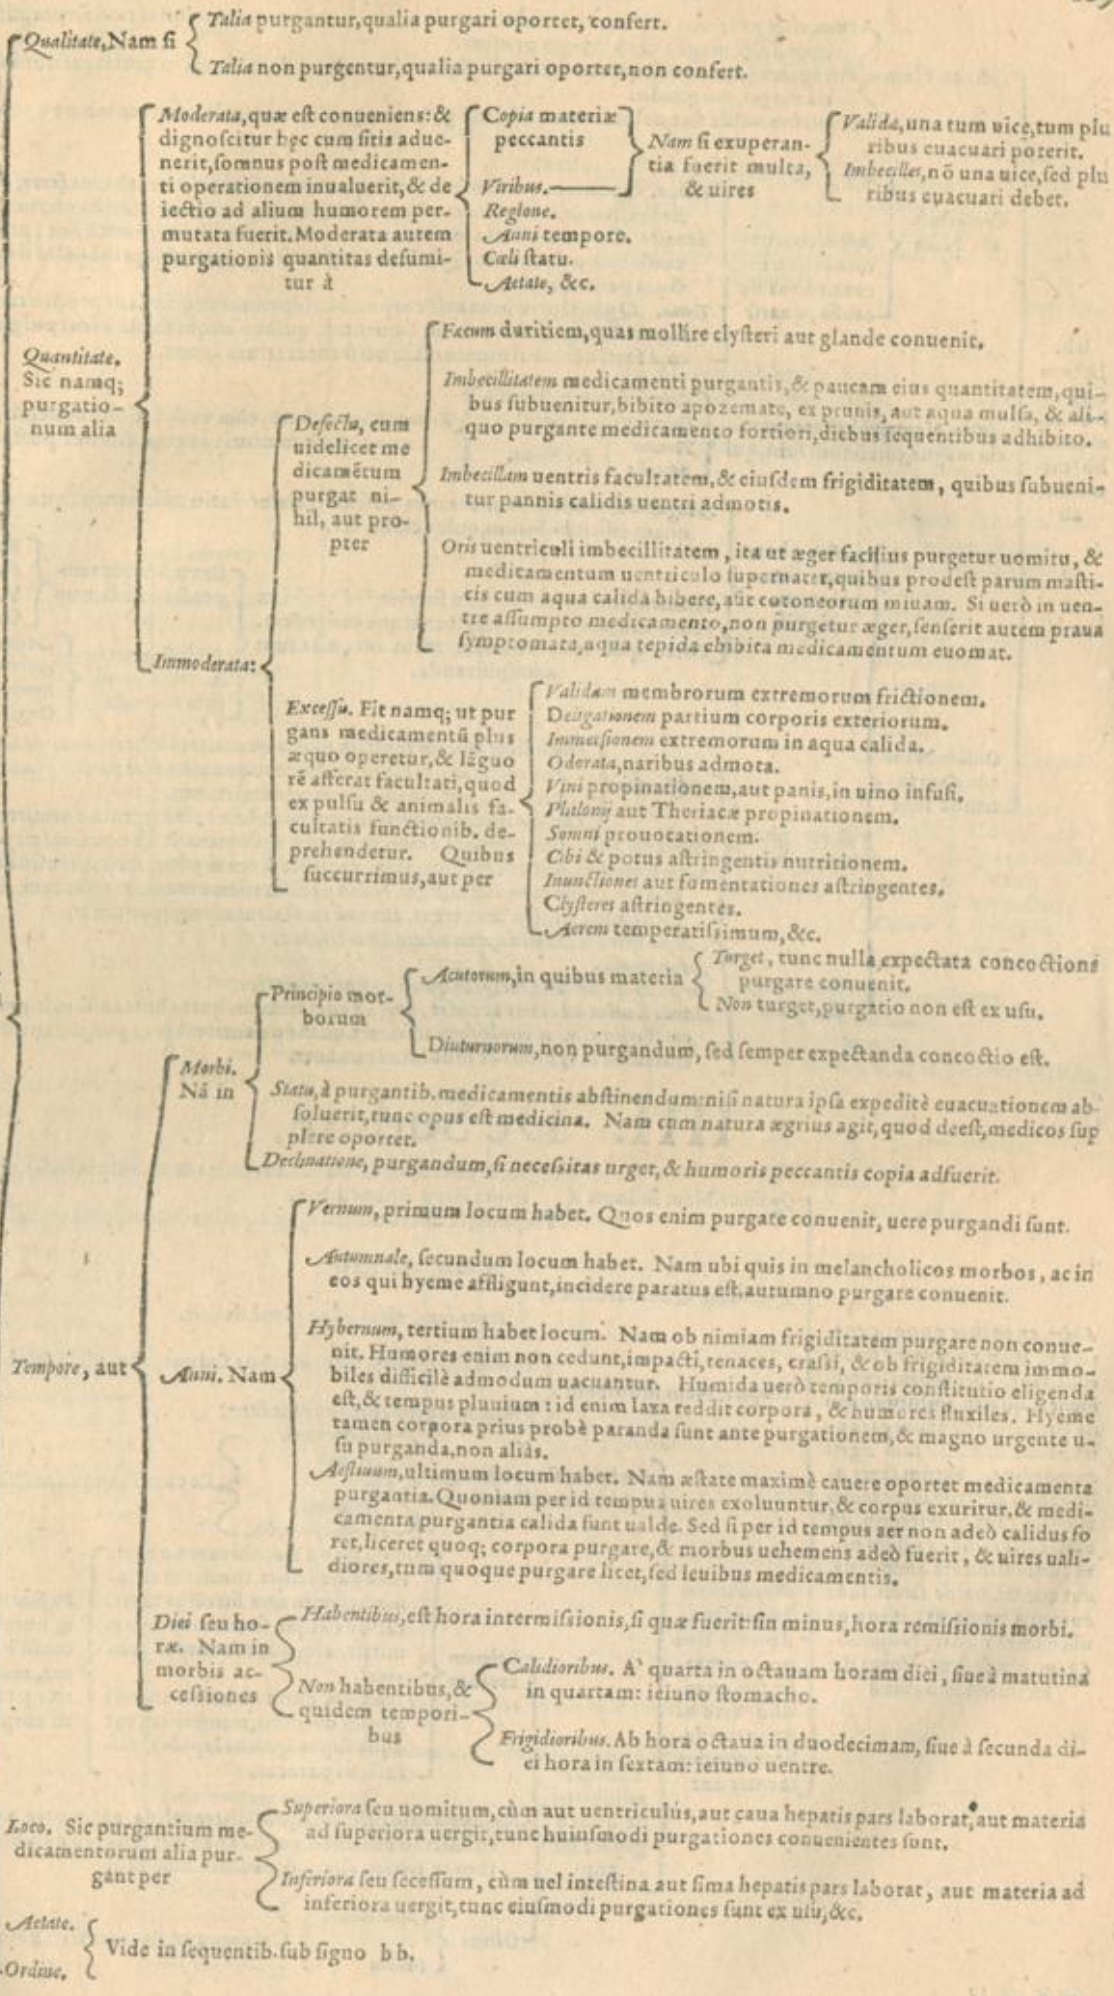 Qualitate, Nam ſi
Talia purgantur, qualia purgari oportet, confert.
Talia non purgentur, qualia purgari oportet, non confert.
Quantitate.
Sic namq;
purgatio-
num alia
Moderata, quæ eſt conueniens: &
dignoſcitur hęc cum ſitis adue-
nerit, ſomnus poſt medicamen-
ti operationem inualuerit, & de
iectio ad alium humorem per-
mutata fuerit. Moderata autem
purgationis quantitas deſumi-
tur à
Copia materiæ
peccantis
Viribus.
Regione.
Anni tempore.
Cæli ſtatu.
Aetate, &c.
Nam ſi exuperan-
tia fuerit multa,
& uires
Valida, una tum uice, tum plu
ribus euacuari poterit.
Imbecilles, nō una uice, ſed plu
ribus euacuari debet.
Immoderata:
Defectu, cum
uidelicet me
dicamētum
purgat ni-
hil, aut pro-
pter
Fæcum duritiem, quas mollire clyſteri aut glande conuenit.
Imbecillitatem medicamenti purgantis, & paucam eius quantitatem, qui-
bus ſubuenitur, bibito apozemate, ex prunis, aut aqua mulſa, & ali-
quo purgante medicamento fortiori, diebus ſequentibus adhibito.
Imbecillam uentris facultatem, & eiuſdem frigiditatem, quibus ſubueni-
tur pannis calidis uentri admotis.
Oris uentriculi imbecillitatem, ita ut æger facilius purgetur uomitu, &
medicamentum uentriculo ſupernatet, quibus prodeſt parum maſti-
cis cum aqua calida bibere, aut cotoneorum miuam. Si uerò in uen-
tre aſſumpto medicamento, non purgetur æger, ſenſerit autem praua
ſymptomata, aqua tepida ebibita medicamentum euomat.
Exceſſu. Fit namq; ut pur
gans medicamentū plus
æquo operetur, & lāguo
rē afferat facultati, quod
ex pulſu & animalis fa-
cultatis functionib. de-
prehendetur. Quibus
ſuccurrimus, aut per
Validam membrorum extremorum frictionem.
Deligationem partium corporis exteriorum.
Immerſionem extremorum in aqua calida.
Odorata, naribus admota.
Vini propinationem, aut panis, in uino infuſi.
Philonij aut Theriacæ propinationem.
Somni prouocationem.
Cibi & potus aſtringentis nutritionem.
Inunctiones aut fomentationes aſtringentes.
Clyſteres aſtringentes.
Aerem temperatiſsimum, &c.
Tempore, aut
Morbi.
Nā in
Principio mor-
borum
Acutorum, in quibus materia
Turget, tunc nulla expectata concoctione
purgare conuenit.
Non turget, purgatio non eſt ex uſu.
Diuturnorum, non purgandum, ſed ſemper expectanda concoctio eſt.
Statu, à purgantib. medicamentis abſtinendum: niſi natura ipſa expeditè euacuationem ab-
ſoluerit, tunc opus eſt medicina. Nam cum natura ægrius agit, quod deeſt, medicos ſup
plere oportet.
Declinatione, purgandum, ſi neceſsitas urget, & humoris peccantis copia adfuerit.
Anni. Nam
Vernum, primum locum habet. Quos enim purgare conuenit, uere purgandi ſunt.
Autumnale, ſecundum locum habet. Nam ubi quis in melancholicos morbos, ac in
eos qui hyeme affligunt, incidere paratus eſt, autumno purgare conuenit.
Hybernum, tertium habet locum. Nam ob nimiam frigiditatem purgare non conue-
nit. Humores enim non cedunt, impacti, tenaces, craſsi, & ob frigiditatem immo-
biles difficilè admodum uacuantur. Humida uerò temporis conſtitutio eligenda
eſt, & tempus pluuium: id enim laxa reddit corpora, & humores fluxiles. Hyeme
tamen corpora prius probè paranda ſunt ante purgationem, & magno urgente u-
ſu purganda, non aliàs.
Aeſtiuum, ultimum locum habet. Nam æſtate maximè cauere oportet medicamenta
purgantia. Quoniam per id tempus uires exoluuntur, & corpus exuritur, & medi-
camenta purgantia calida ſunt ualde. Sed ſi per id tempus aer non adeò calidus fo
ret, liceret quoq; corpora purgare, & morbus uehemens adeò fuerit, & uires uali-
diores, tum quoque purgare licet, ſed leuibus medicamentis.
Diei ſeu ho-
ræ. Nam in
morbis ac-
ceſsiones
Habentibus, eſt hora intermiſsionis, ſi quæ fuerit: ſin minus, hora remiſsionis morbi.
Non habentibus, &
quidem tempori-
bus
Calidioribus. A' quarta in octauam horam diei, ſiue à matutina
in quartam: ieiuno ſtomacho.
Frigidioribus. Ab hora octaua in duodecimam, ſiue à ſecunda di-
ei hora in ſextam: ieiuno uentre.
Loco. Sic purgantium me-
dicamentorum alia pur-
gant per
Superiora ſeu uomitum, cùm aut uentriculus, aut caua hepatis pars laborat, aut materia
ad ſuperiora uergit, tunc huiuſmodi purgationes conuenientes ſunt.
Inferiora ſeu ſeceſſum, cùm uel inteſtina aut ſima hepatis pars laborat, aut materia ad
inferiora uergit, tunc eiuſmodi purgationes ſunt ex uſu, &c.
Aetate.
Ordine.
Vide in ſequentib. ſub ſigno bb.